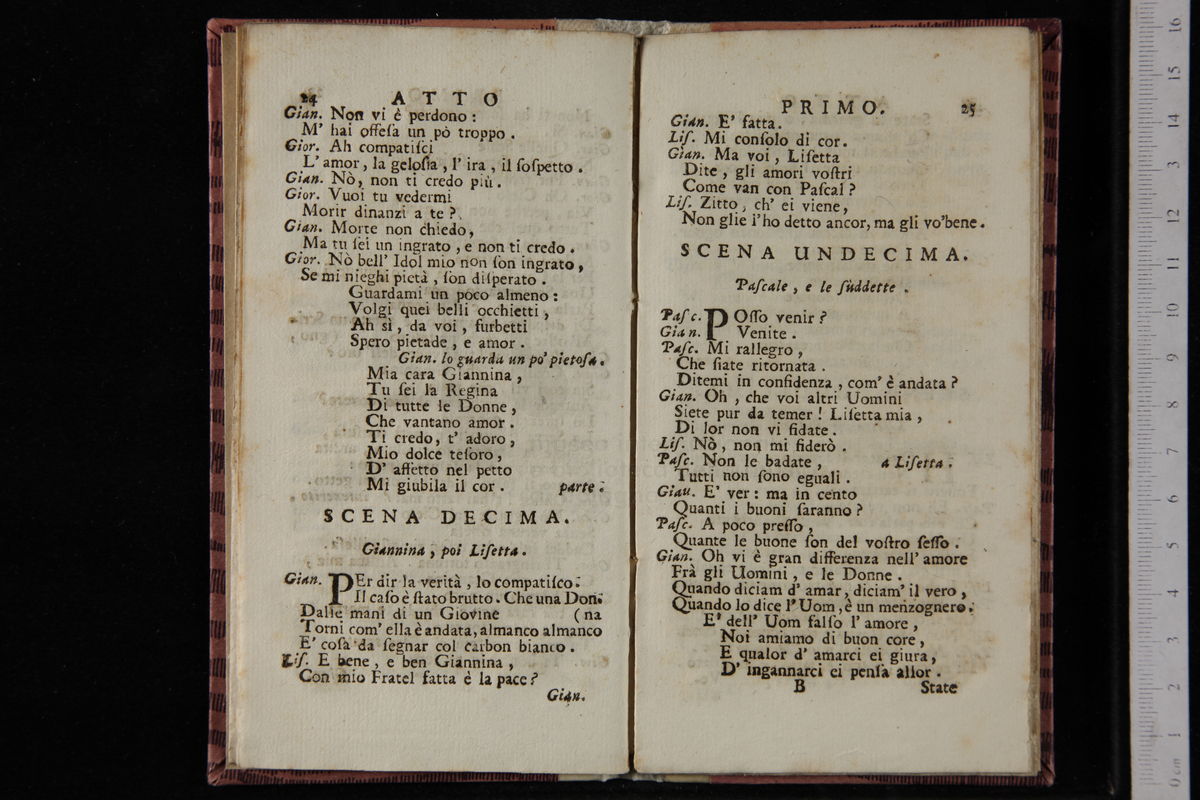 24 ATTO
Gian. Non vi è perdono :
M' hai offeſa un pò troppo .
Gior. Ah compatiſci
L' amor , la geloſia , l' ira , il ſoſpetto .
Gian. Nò, non ti credo più .
Gior. Vuoi tu vedermi
Morir dinanzi a te ?
Gian. Morte non chiedo,
Ma tu ſei un ingrato , e non ti credo .
Gior. Nò bell' Idol mio non ſon ingrato ,
Se mi nieghi pietà , ſon diſperato .
Guardami un poco almeno :
Volgi quei belli occhietti ,
Ah sì , da voi , furbetti
Spero pietade , e amor .
Gian. lo guarda un pò pietoſa .
Mia cara Giannina ,
Tu ſei la Regina
Di tutte le Donne ,
Che vantano amor .
Ti credo, t' adoro ,
Mio dolce teſoro ,
D' affetto nel petto
Mi giubila il cor . parte .
SCENA DECIMA.
Giannina , poi Liſetta .
Gian. PEr dir la verità , lo compatiſco .
Il caſo è ſtato brutto . Che una Don-
Dalle mani di un Giovine (na
Torni com' ella è andata, almanco almanco
E' coſa da ſegnar col carbon bianco .
Liſ. E bene , e ben Giannina ,
Con mio Fratel fatta è la pace ?
Gian.
PRIMO. 25
Gian. E' fatta.
Liſ. Mi conſolo di cor.
Gian. Ma voi , Liſetta
Dite , gli amori voſtri
Come van con Paſcal ?
Liſ. Zitto , ch' ei viene ,
Non glie i'ho detto ancor, ma gli vo'bene .
SCENA UNDECIMA.
Paſcale , e le ſuddette .
Paſc. POſſo venir ?
Gian. Venite .
Paſc. Mi rallegro ,
Che ſiate ritornata .
Ditemi in confidenza , com' è andata ?
Gian. Oh , che voi altri Uomini
Siete pur da temer ! Liſetta mia ,
Di lor non vi fidate .
Liſ. Nò , non mi fiderò .
Paſc. Non le badate , a Liſetta .
Tutti non ſono eguali .
Giau. E' ver : ma in cento
Quanti i buoni ſaranno ?
Paſc. A poco preſſo ,
Quante le buone ſon del voſtro ſeſſo .
Gian. Oh vi è gran differenza nell' amore
Frà gli Uomini , e le Donne .
Quando diciam d' amar , diciam' il vero ,
Quando lo dice l' Uom , è un menzognero .
E' dell' Uom falſo l' amore ,
Noi amiamo di buon core ,
E qualor d' amarci ei giura ,
D' ingannarci ei penſa allor .
B State
16
15
14
13
12
11
10
9
8
7
6
5
4
3
2
1
0 cm